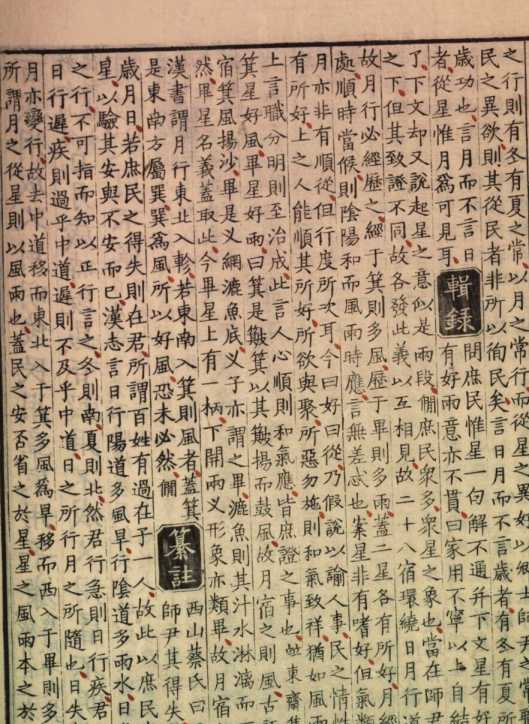 之行則有冬有夏之常以月之常行而從星之異以卿士師尹常
民之異欲則其從民者非所以徇民矣言日月而不言歲者有冬有夏所
歲功也言月而不言日
者從星惟月爲可見耳
輯録
問庶民惟星一句解不通并下文星有好
有好雨意亦不貫曰家用不寧以上自結
了下文却又說起星之意似是兩段僩庶民衆多衆星之象也當在師尹
之下但其致證不同故各發此義以互相見故二十八宿環繞日月行道
故月行必經歷之經于箕則多風歷于畢則多雨蓋二星各有所好月經
處順時當候則陰陽和而風雨時應言無差忒也案星非有嗜好但氣類
月亦非有順從但行度所次耳今曰好曰從乃假說以諭人事民之情
有所好上之人能順其所好所欲與聚所惡勿施則和氣致祥猶如風雨
上言職分明則至治成此言人心順則和氣應皆庶證之事也東齋集
箕星好風畢星好雨曰箕是簸箕以其簸揚而鼓風故月宿之則風古
宿箕風揚沙畢是义網漉魚底义子亦謂之畢漉魚則其汁水淋漓而
然畢星名義蓋取此今畢星上有一柄下開兩义形象亦類畢故月宿
漢書謂月行東北入軫若東南入箕則風者蓋箕
是東南方屬巽巽爲風所以好風恐未必然僩
纂註
西山蔡氏曰
師尹其得失
歲月日若庶民之得失則在君所謂百姓有過在予一人故此以庶民
星以驗其安與不安而已漢志言日行陽道多風早行陰道多雨水日
之行不可指而知以正行言之冬則南夏則北然君行急則日行疾君
日行遲疾則過乎中道遲則不及乎中道日之所行月之所隨也日失
月亦變行故去中道移而東北入于箕多風爲旱移而西入于畢則多
所謂月之從星則以風雨也蓋民之安否省之於星星之風雨本之於